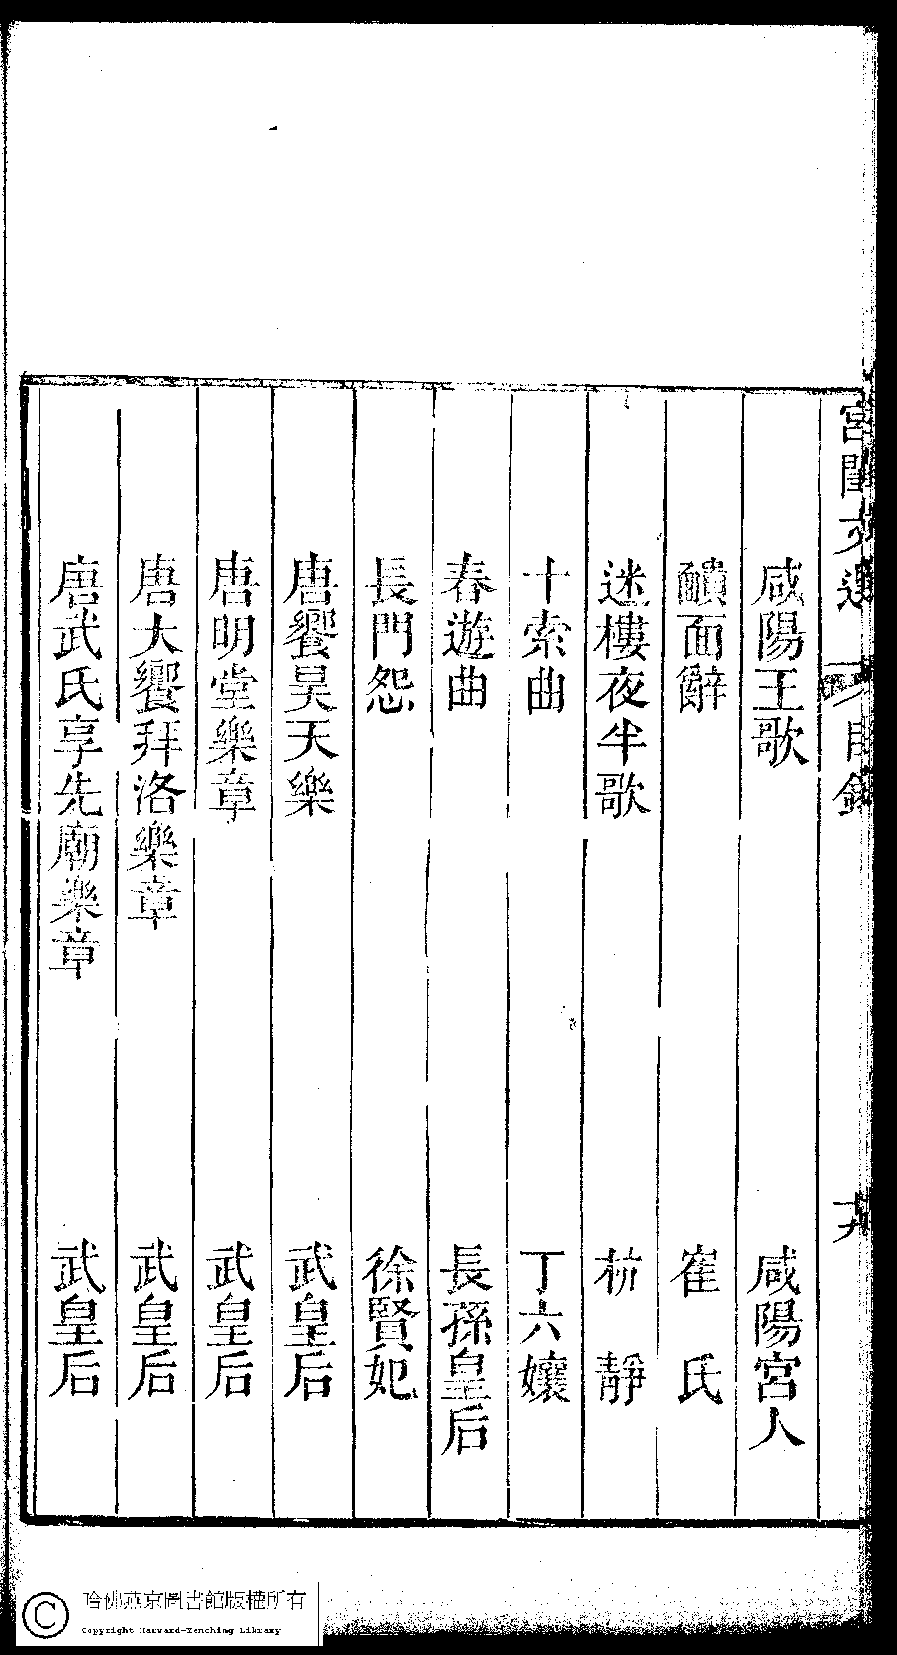 宮閨文選 目錄 十六
咸陽王歌 咸陽宮人
靧面辭 崔 氏
迷樓夜半歌 杭 靜
十索曲 丁六孃
春遊曲 長孫皇后
長門怨 徐賢妃
唐饗昊天樂 武皇后
唐明堂樂章 武皇后
唐大饗拜洛樂章 武皇后
唐武氏享先廟樂章 武皇后
哈佛燕京圖書館版權所有
Copyright Harvard-Yenching Library